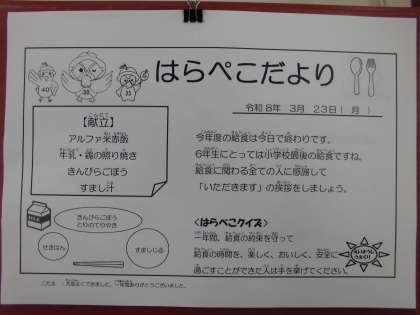 はらぺこだより
令和8年 3月 23日(月)
【献立】
アルファ米赤飯
牛乳・鶏の照り焼き
きんぴらごぼう
すまし汁
今年度の給食は今日で終わりです。
6年生にとっては小学校最後の給食ですね。
給食に関わる全ての人に感謝して
「いただきます」の挨拶をしましょう。
きんぴらごぼう
とりのてりやき
せきはん
すましじる
<はらぺこクイズ>
一年間、給食の約束を守って
給食の時間を、楽しく、おいしく、安全に
過ごすことができた人は手を挙げてください。